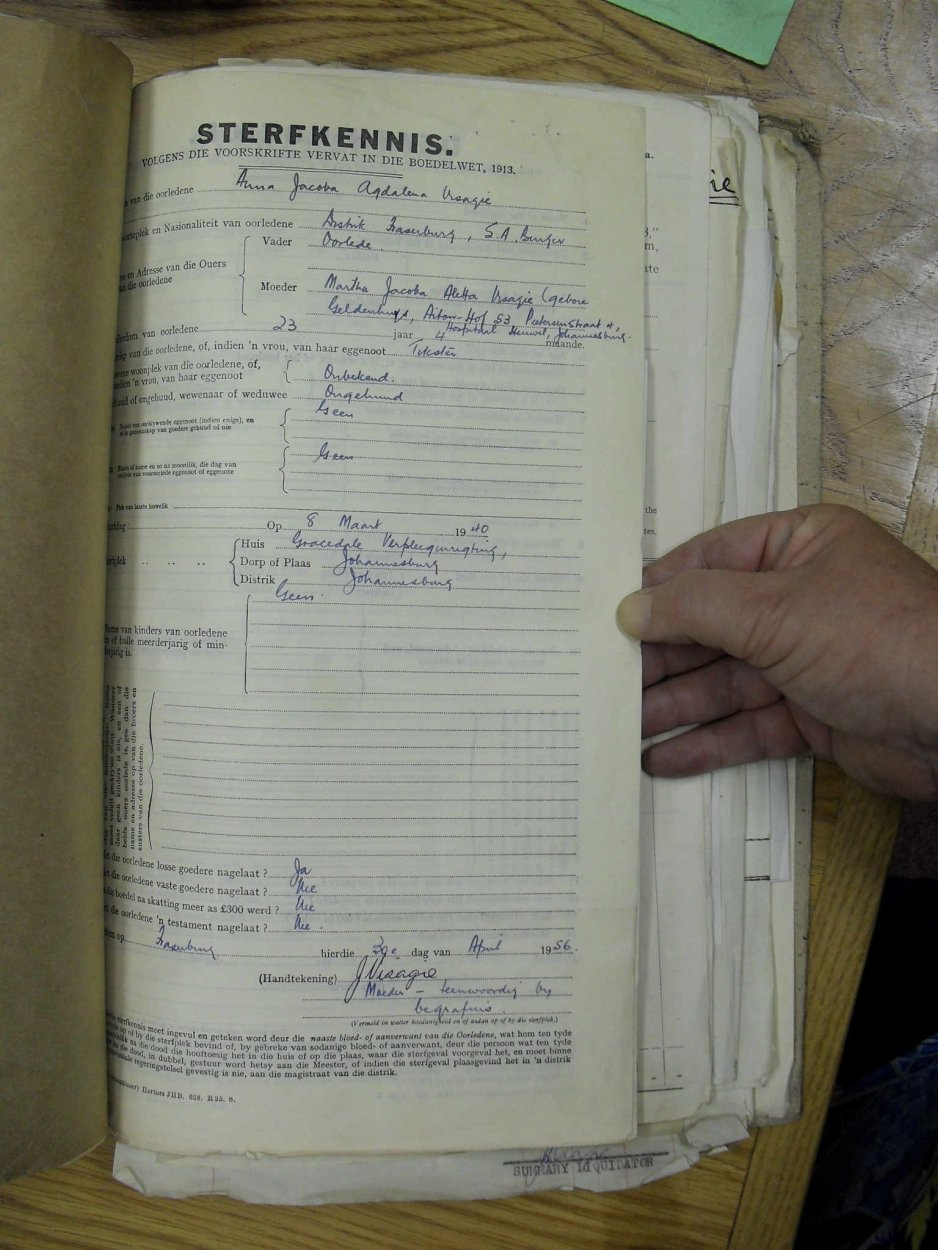 STERFKENNIS.
VOLGENS DIE VOORSKRIFTE VERVAT IN DIE BOEDELWET, 1913.
van die oorledene Anna Jacoba Agdalena Visagie
en Nasionaliteit van oorledene Distrik Fraserburg, S.A. Burger
Vader Oorlede
en Adresse van die Ouers
die oorledene
Moeder Martha Jacoba Aletta Visagie (gebore
Geldenhuys, 53 Pietersenstraat 4,
van oorledene 23 jaar 4 maande. Hospitaal Heuwel, Johannesburg.
van die oorledene, of, indien 'n vrou, van haar eggenoot Tikster
woonplek van die oorledene, of,
indien 'n vrou, van haar eggenoot Onbekend.
of ongehuud, wewenaar of weduwee Ongehuud
Naam van oorblywende eggenoot (indien enige), en
of in gemeenskap van goedere gehuud of nie Geen
Naam of name en so na moontlik, die dag van
van vooroorlede eggenoot of eggenote Geen
Plek van laaste huwelik
Op 8 Maart 1940
Huis Gracedale Verpleeginrigting,
Dorp of Plaas Johannesburg
Distrik Johannesburg
Geen.
Name van kinders van oorledene
of hulle meerderjarig of min-
derjarig is.
daar geen kinders is nie, en een of
beide ouers oorlede is, gee dan die
name en adresse op van die broers en
susters van die oorledene.
die oorledene losse goedere nagelaat? Ja
die oorledene vaste goedere nagelaat? Nee
die boedel na skatting meer as £300 werd? Nee
die oorledene 'n testament nagelaat? Nee.
op Fraserburg hierdie 30e dag van April 1956.
(Handtekening) J Visagie
Moeder – teenwoordig by
begrafnis.
(Vermeld in watter hoedanigheid en of aldan op of by die sterfplek.)
sterfkennis moet ingevul en geteken word deur die naaste bloed- of aanverwant van die Oorledene, wat hom ten tyde
op of by die sterfplek bevind of, by gebreke van sodanige bloed- of aanverwant, deur die persoon wat ten tyde
die dood die hooftoesig het in die huis of op die plaas, waar die sterfgeval voorgeval het, en moet binne
die dood, in dubbel, gestuur word hetsy aan die Meester, of indien die sterfgeval plaasgevind het in 'n distrik
regeringstelsel gevestig is nie, aan die magistraat van die distrik.
Hortors JHB. 628. R.25. B.
a.
ie
the
tes,
SUMMARY LIQUIDATOR